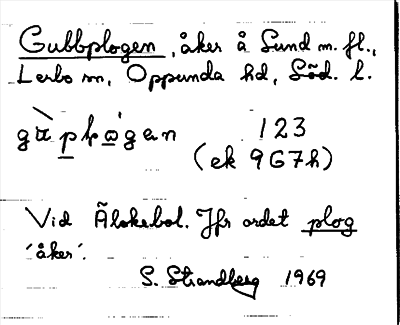 Gubbplogen, åker å Lund m. fl.,
Lerbo sn, Oppunda hd, Söd. l.
123
(ek 9G7h)
Vid Älokebol. Jfr ordet plog
'åker'.
S. Strandberg 1969